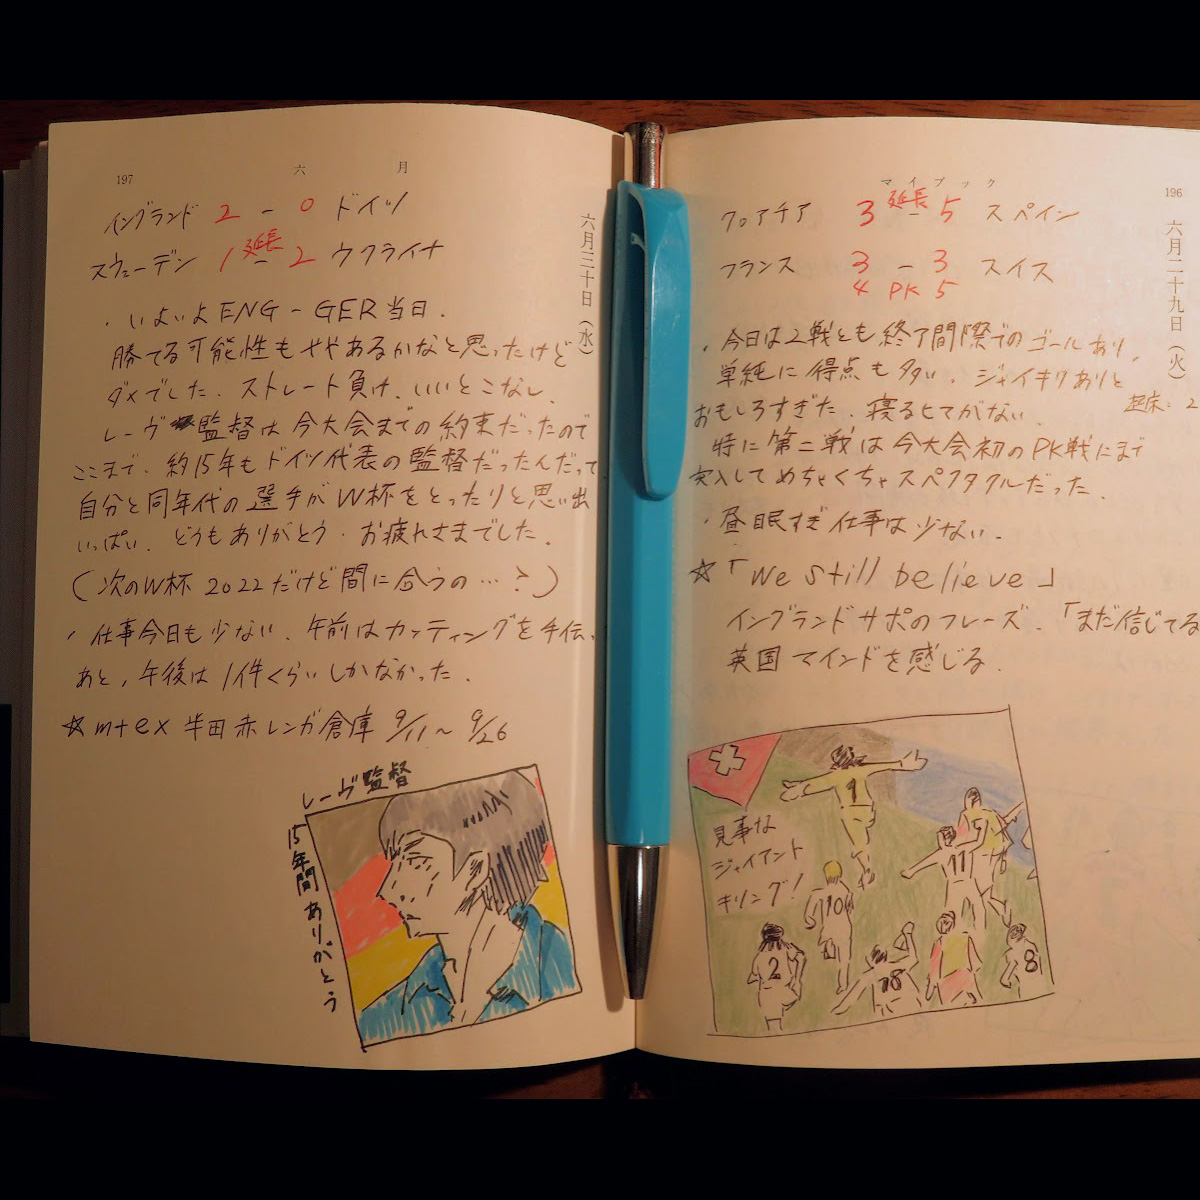 マイブック
196
六月二十九日(火)
クロアチア 3 延長 - 5 スペイン
フランス 3 - 3 スイス
4 PK 5
・今日は2戦とも終了間際でのゴールあり、
単純に得点も多い、ジャイキリありと
おもしろすぎた、寝るヒマがない
起床:2
特に第二戦は今大会初のPK戦にまで
突入してめちゃくちゃスペクタクルだった、
・昼眠すぎ 仕事は少ない、
☆「We still believe」
イングランドサポのフレーズ、「まだ信じてる
英国マインドを感じる、
見事な
ジャイアント
キリング!
1
11
10
2
18
8
197
六月
六月三十日(水)
イングランド 2 - 0 ドイツ
スウェーデン 1 延長 - 2 ウクライナ
・いよいよENG - GER当日、
勝てる可能性もややあるかなと思ったけど
ダメでした、ストレート負け、いいとこなし、
レーヴ監督は今大会までの約束だったので
ここまで、約15年もドイツ代表の監督だったんだって
自分と同年代の選手がW杯をとったりと思い出
いっぱい、どうもありがとう・お疲れさまでした、
(次のW杯 2022だけど間に合うの…?)
・仕事今日も少ない、午前はカッティングを手伝、
あと、午後は1件くらいしかなかった、
☆mtex 半田赤レンガ倉庫 9/11〜9/26
レーヴ監督
15年間ありがとう